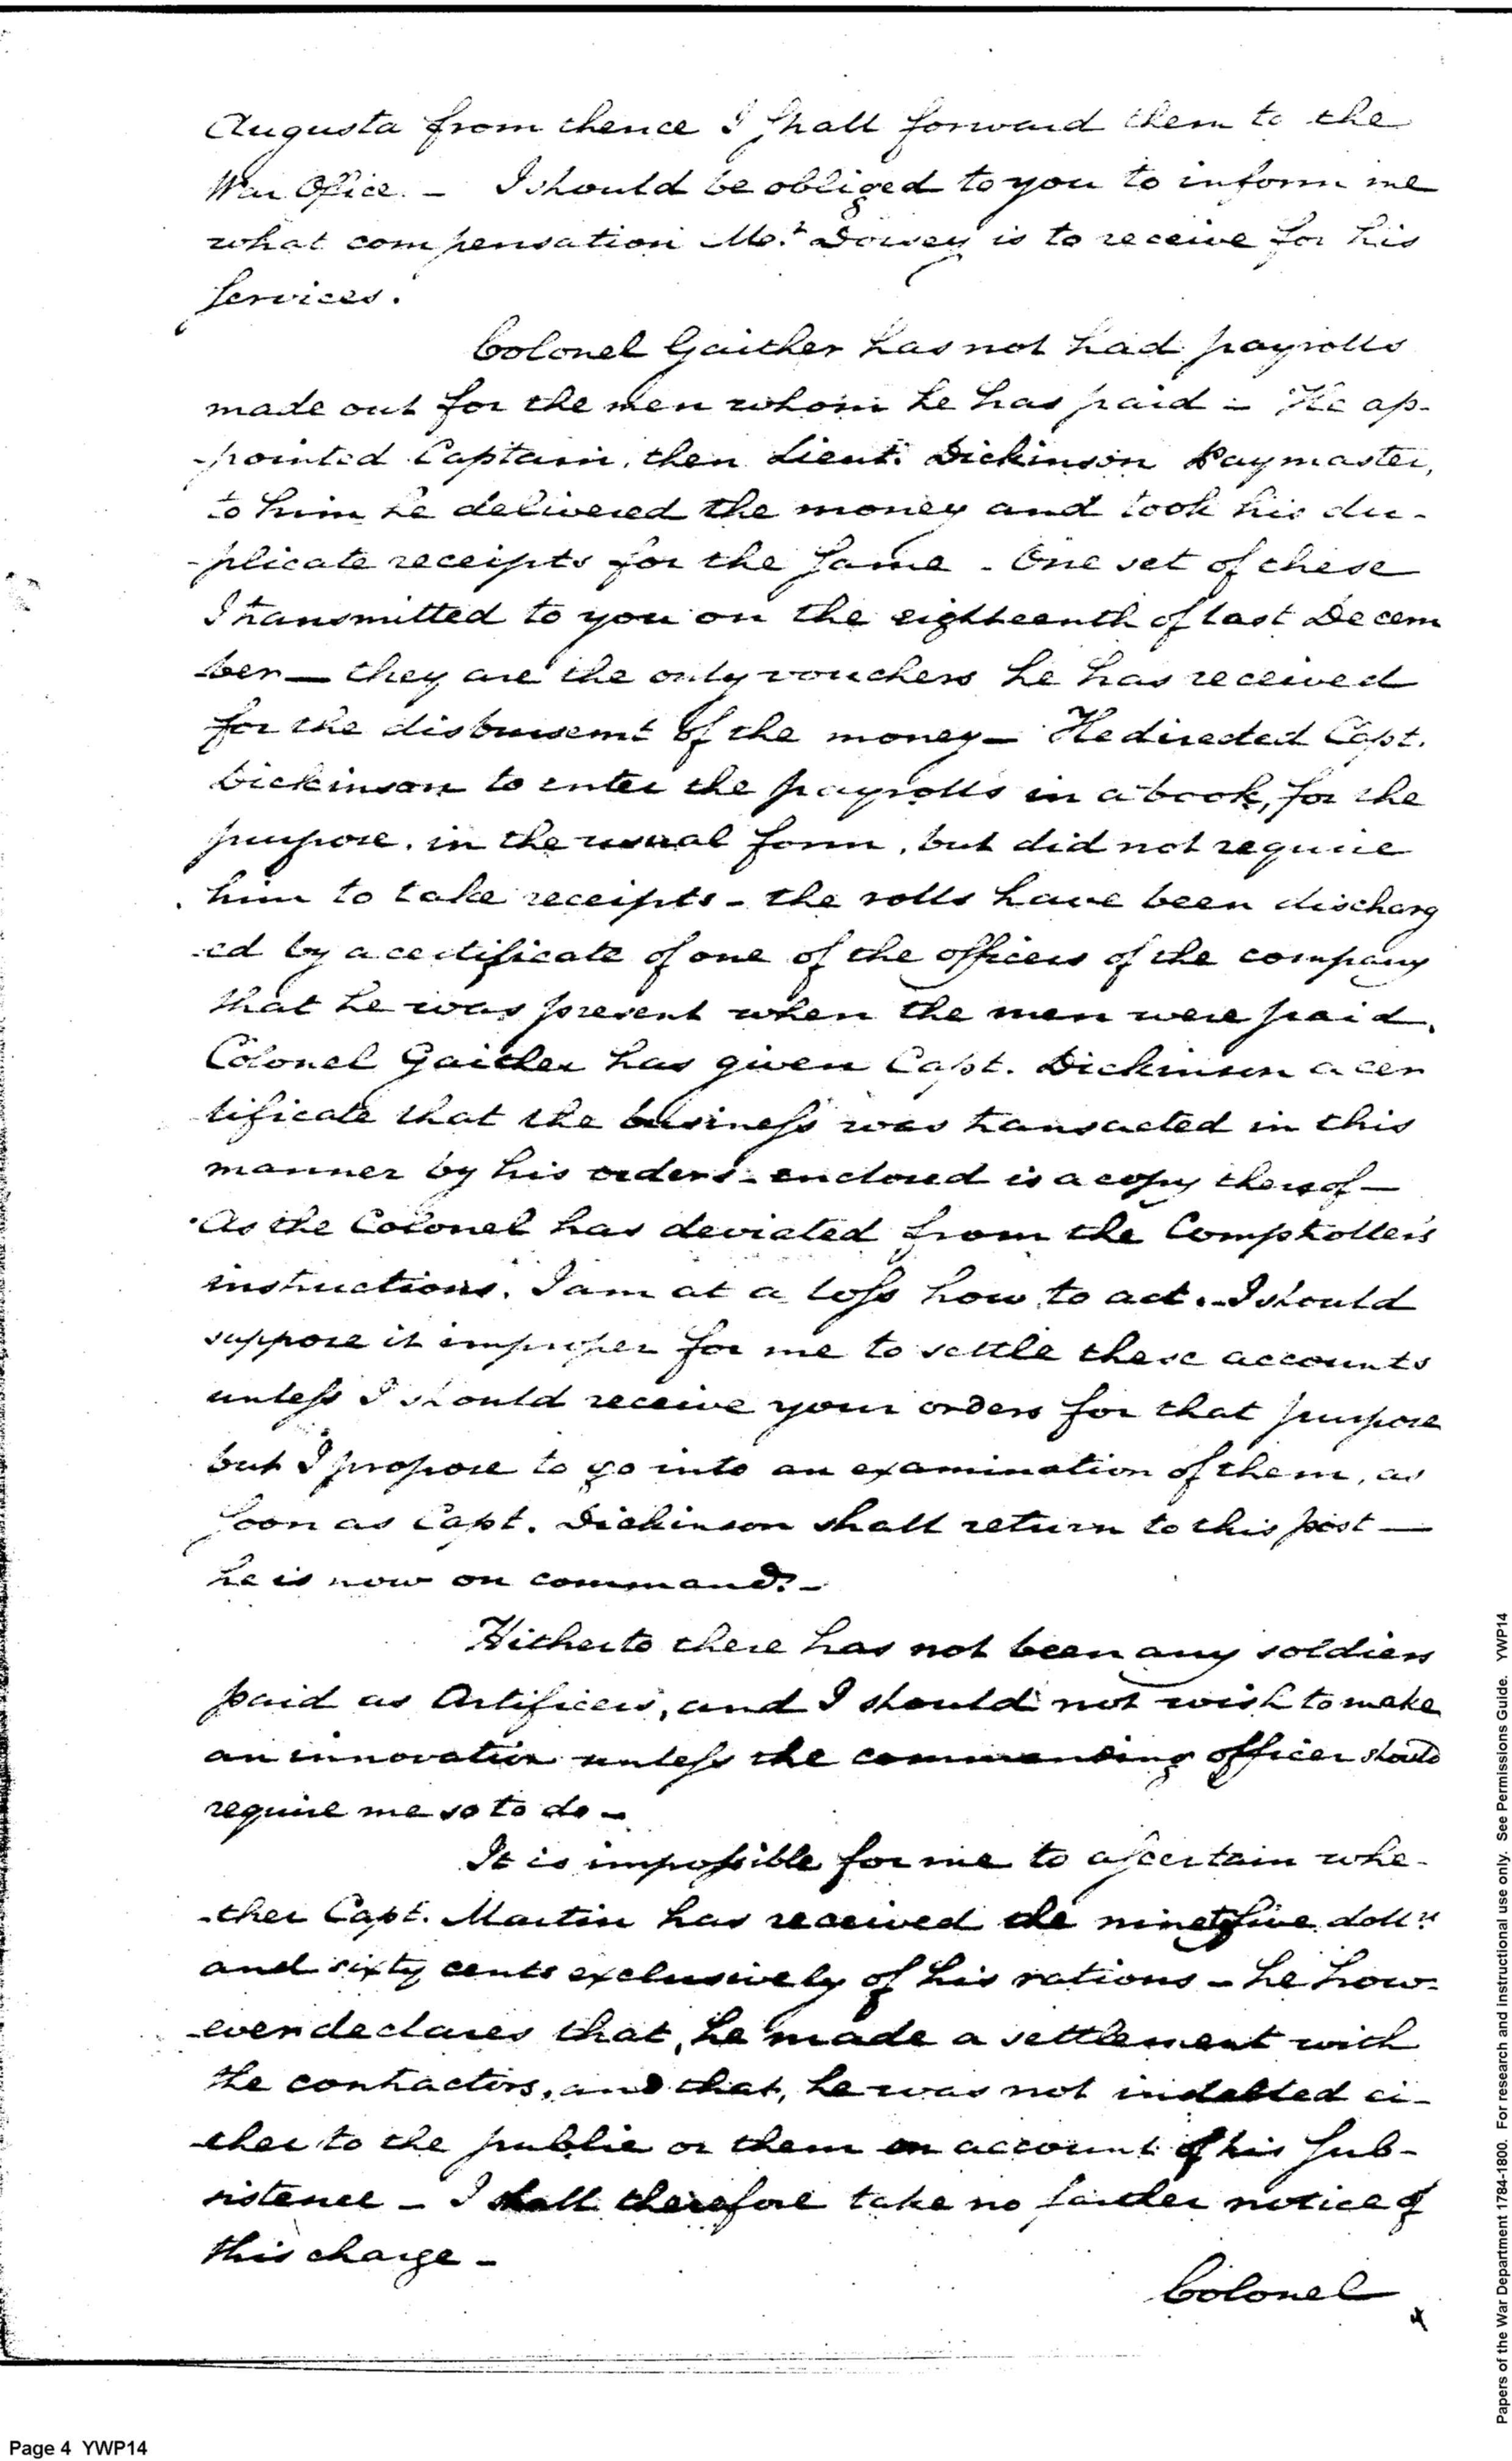 Augusta from thence I shall forward them to the
War Office. – I should be obliged to you to inform me
what compensation Mr. Dowsey is to receive for his
services.
Colonel Gaither has not had payrolls
made out for the men whom he has paid – He ap-
-pointed Captain, then Lieut. Dickinson Paymaster,
to him he delivered the money and took his du-
-plicate receipts for the same – One set of these
I transmitted to you on the eighteenth of last Decem
-ber — they are the only vouchers he has received
for the disbursemt of the money – He directed Capt.
Dickinson to enter the payrolls in a book, for the
purpose, in the usual form, but did not require
him to take receipts – the rolls have been discharg
-ed by a certificate of one of the officers of the company
that he was present when the men were paid.
Colonel Gaither has given Capt. Dickinson a cer
tificate that the business was transacted in this
manner by his orders – enclosed is a copy thereof –
As the Colonel has deviated from the Comptroller's
instructions, I am at a loss how to act. – I should
suppose it improper for me to settle these accounts
unless I should receive your orders for that purpose
but I propose to go into an examination of them, as
soon as Capt. Dickinson shall return to this post —
he is now on command. –
Hitherto there has not been any soldiers
paid as Artificers, and I should not wish to make
an innovation unless the commanding officer should
require me so to do –
It is impossible for me to ascertain whe-
-ther Capt. Martin has received the ninetyfive dollrs
and sixty cents exclusively of his rations – he how-
-ever declares that, he made a settlement with
the contractors, and that, he was not indebted ei-
-ther to the public or them on account of his sub-
sistence – I shall therefore take no farther notice of
this charge –
Colonel
Page 4 YWP14
Papers of the War Department 1784-1800. For research and instructional use only. See Permissions Guide. YWP14